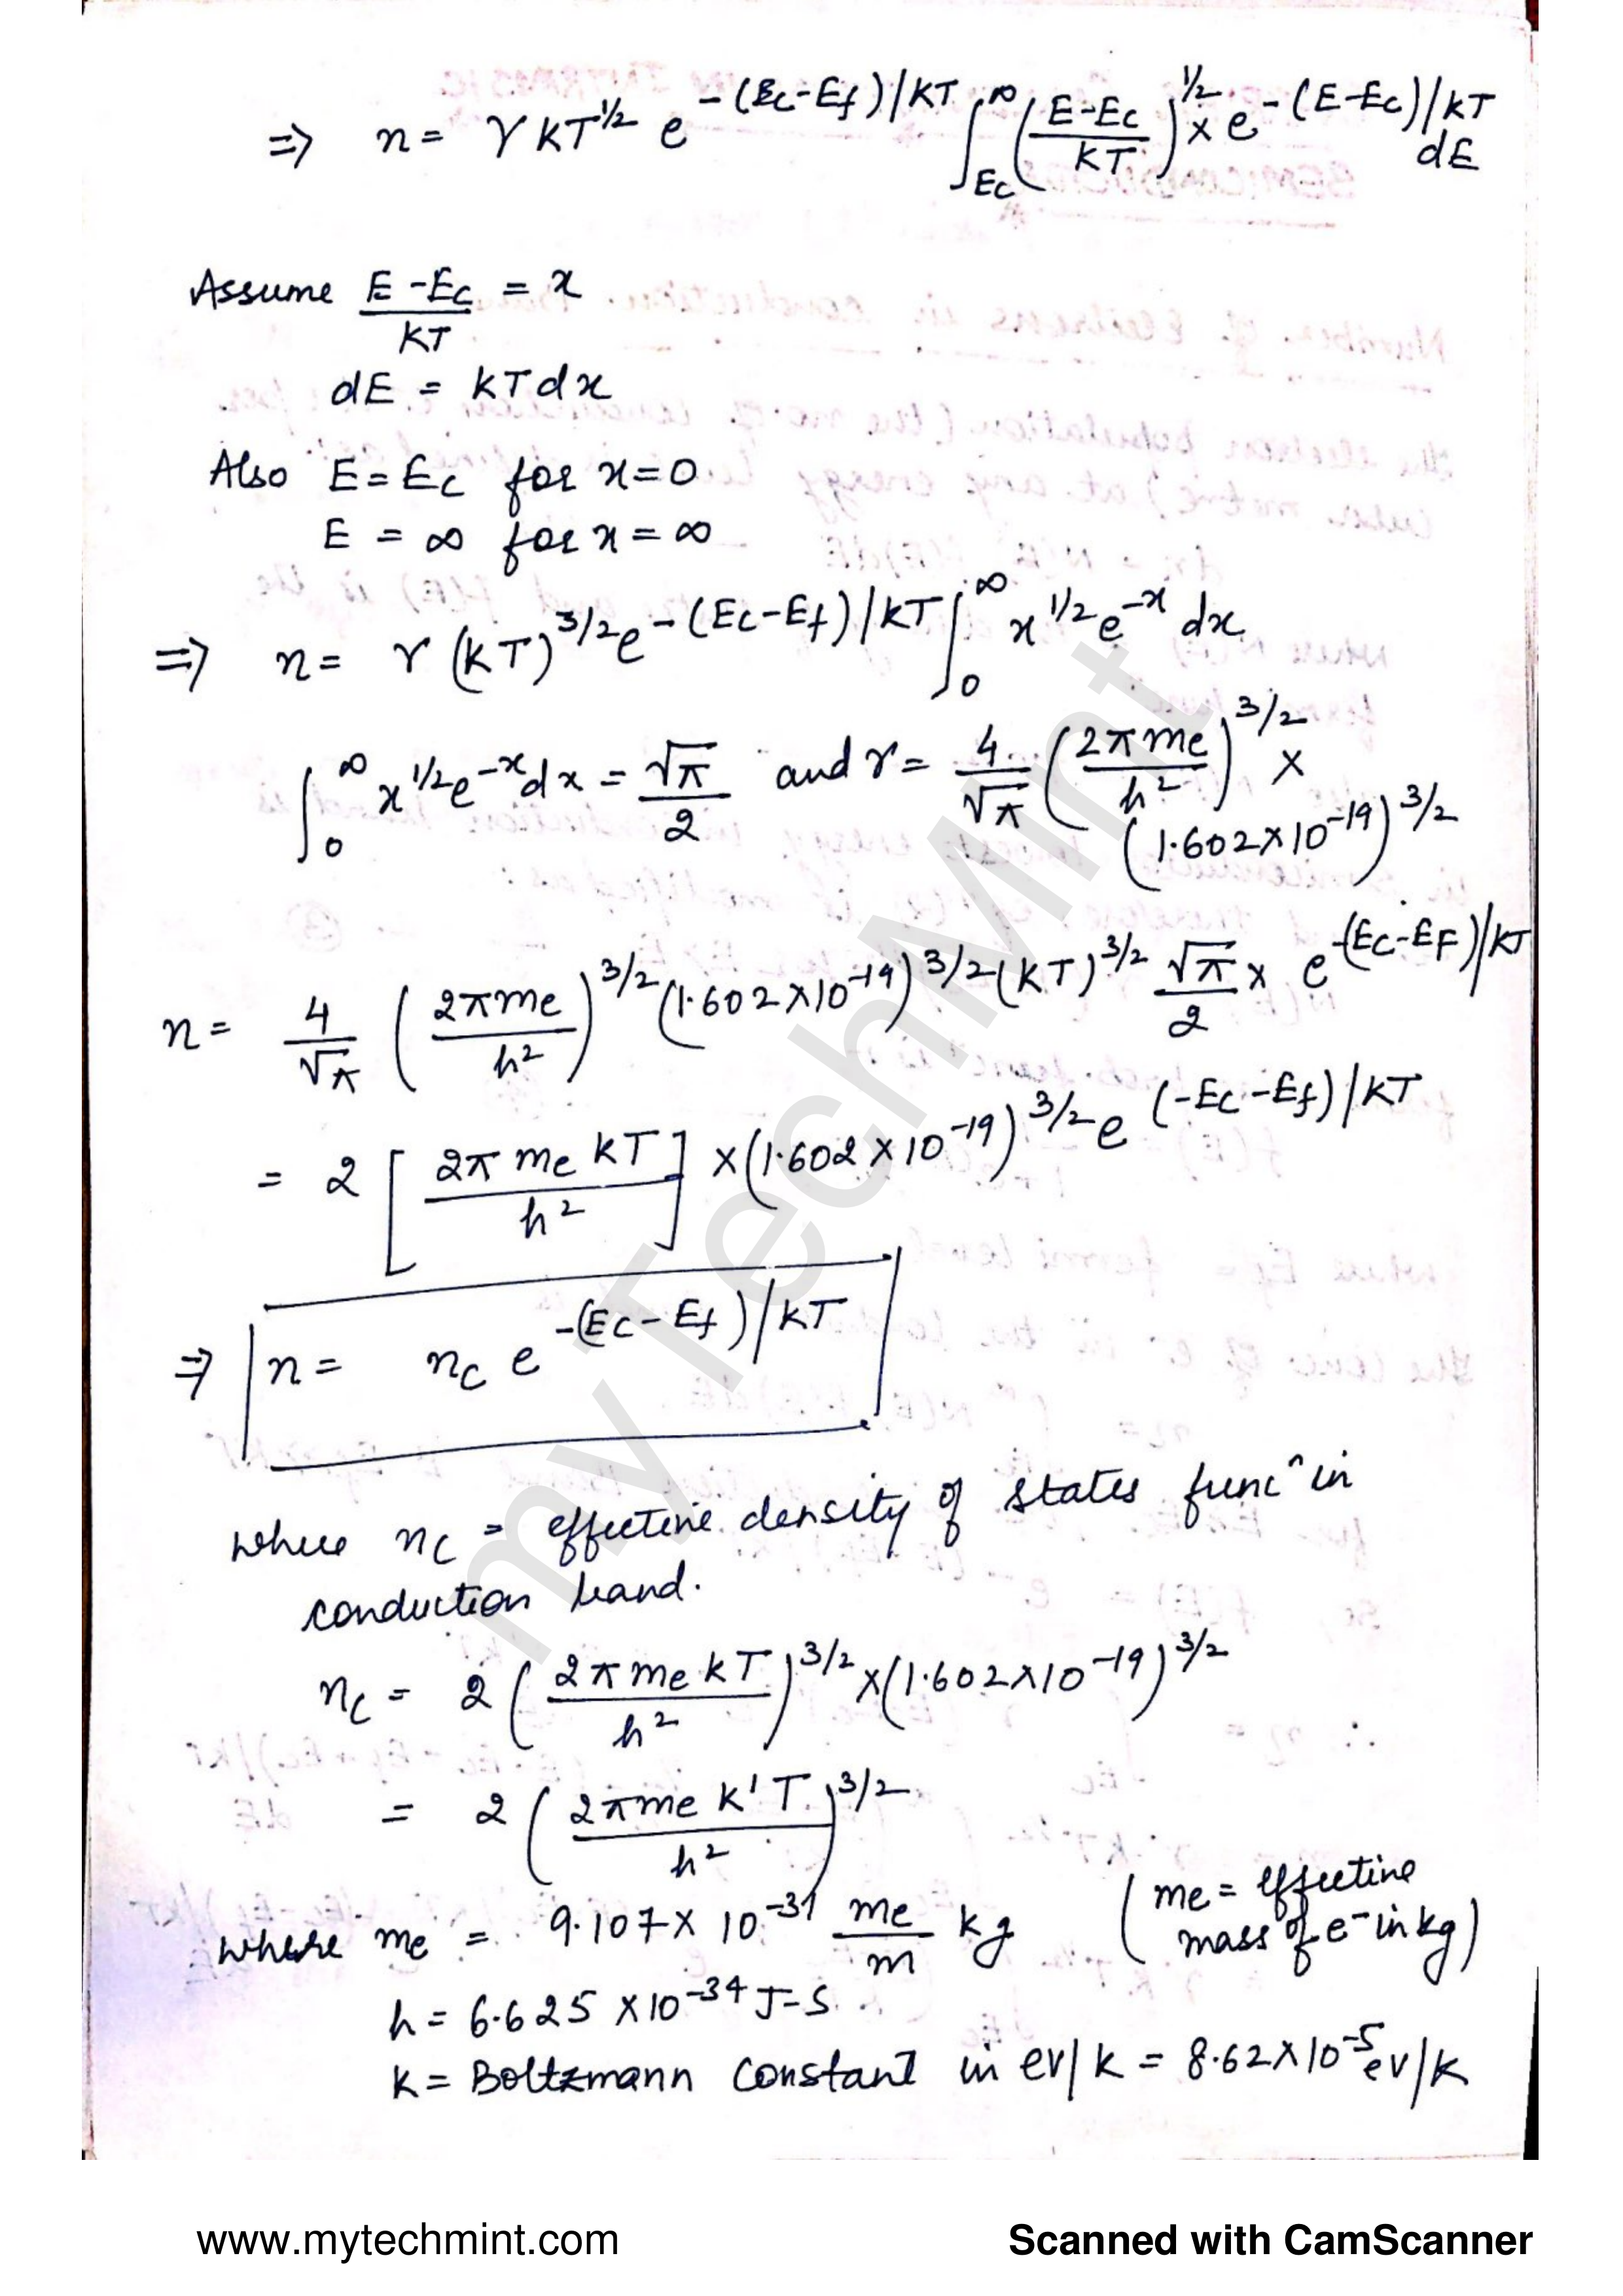 ⇒ n = γ kT^1/2 e^-(Ec-Ef)/kT ∫_Ec^∞ ((E-Ec)/kT)^1/2 × e^-(E-Ec)/kT dE
Assume (E-Ec)/kT = x
dE = kTdx
Also E = Ec for x=0
E = ∞ for x = ∞
⇒ n = γ (kT)^3/2 e^-(Ec-Ef)/kT ∫_0^∞ x^1/2 e^-x dx
∫_0^∞ x^1/2 e^-x dx = √π/2 and γ = 4/√π (2πme/h²)^3/2 ×
(1.602×10^-19)^3/2
n = 4/√π (2πme/h²)^3/2 (1.602×10^-19)^3/2 (kT)^3/2 √π/2 × e^-(Ec-EF)/kT
= 2 [2π me kT/h²] × (1.602 × 10^-19)^3/2 e^(-Ec-Ef)/kT
⇒ n = nc e^-(Ec-Ef)/kT
where nc = effective density of states func^n in
conduction band.
nc = 2 (2π me kT/h²)^3/2 × (1.602×10^-19)^3/2
= 2 (2πme k'T/h²)^3/2
where me = 9.107 × 10^-31 me/m kg (me = effective
mass of e^- in kg)
h = 6.625 × 10^-34 J-S
k = Boltzmann constant in ev/k = 8.62×10^-5 ev/k
myTechMint
www.mytechmint.com
Scanned with CamScanner